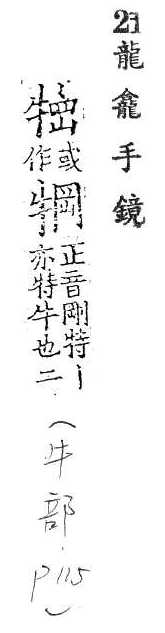 21龍龕手鏡
或作犅正音剛特丨亦特牛也二(牛部.P115)